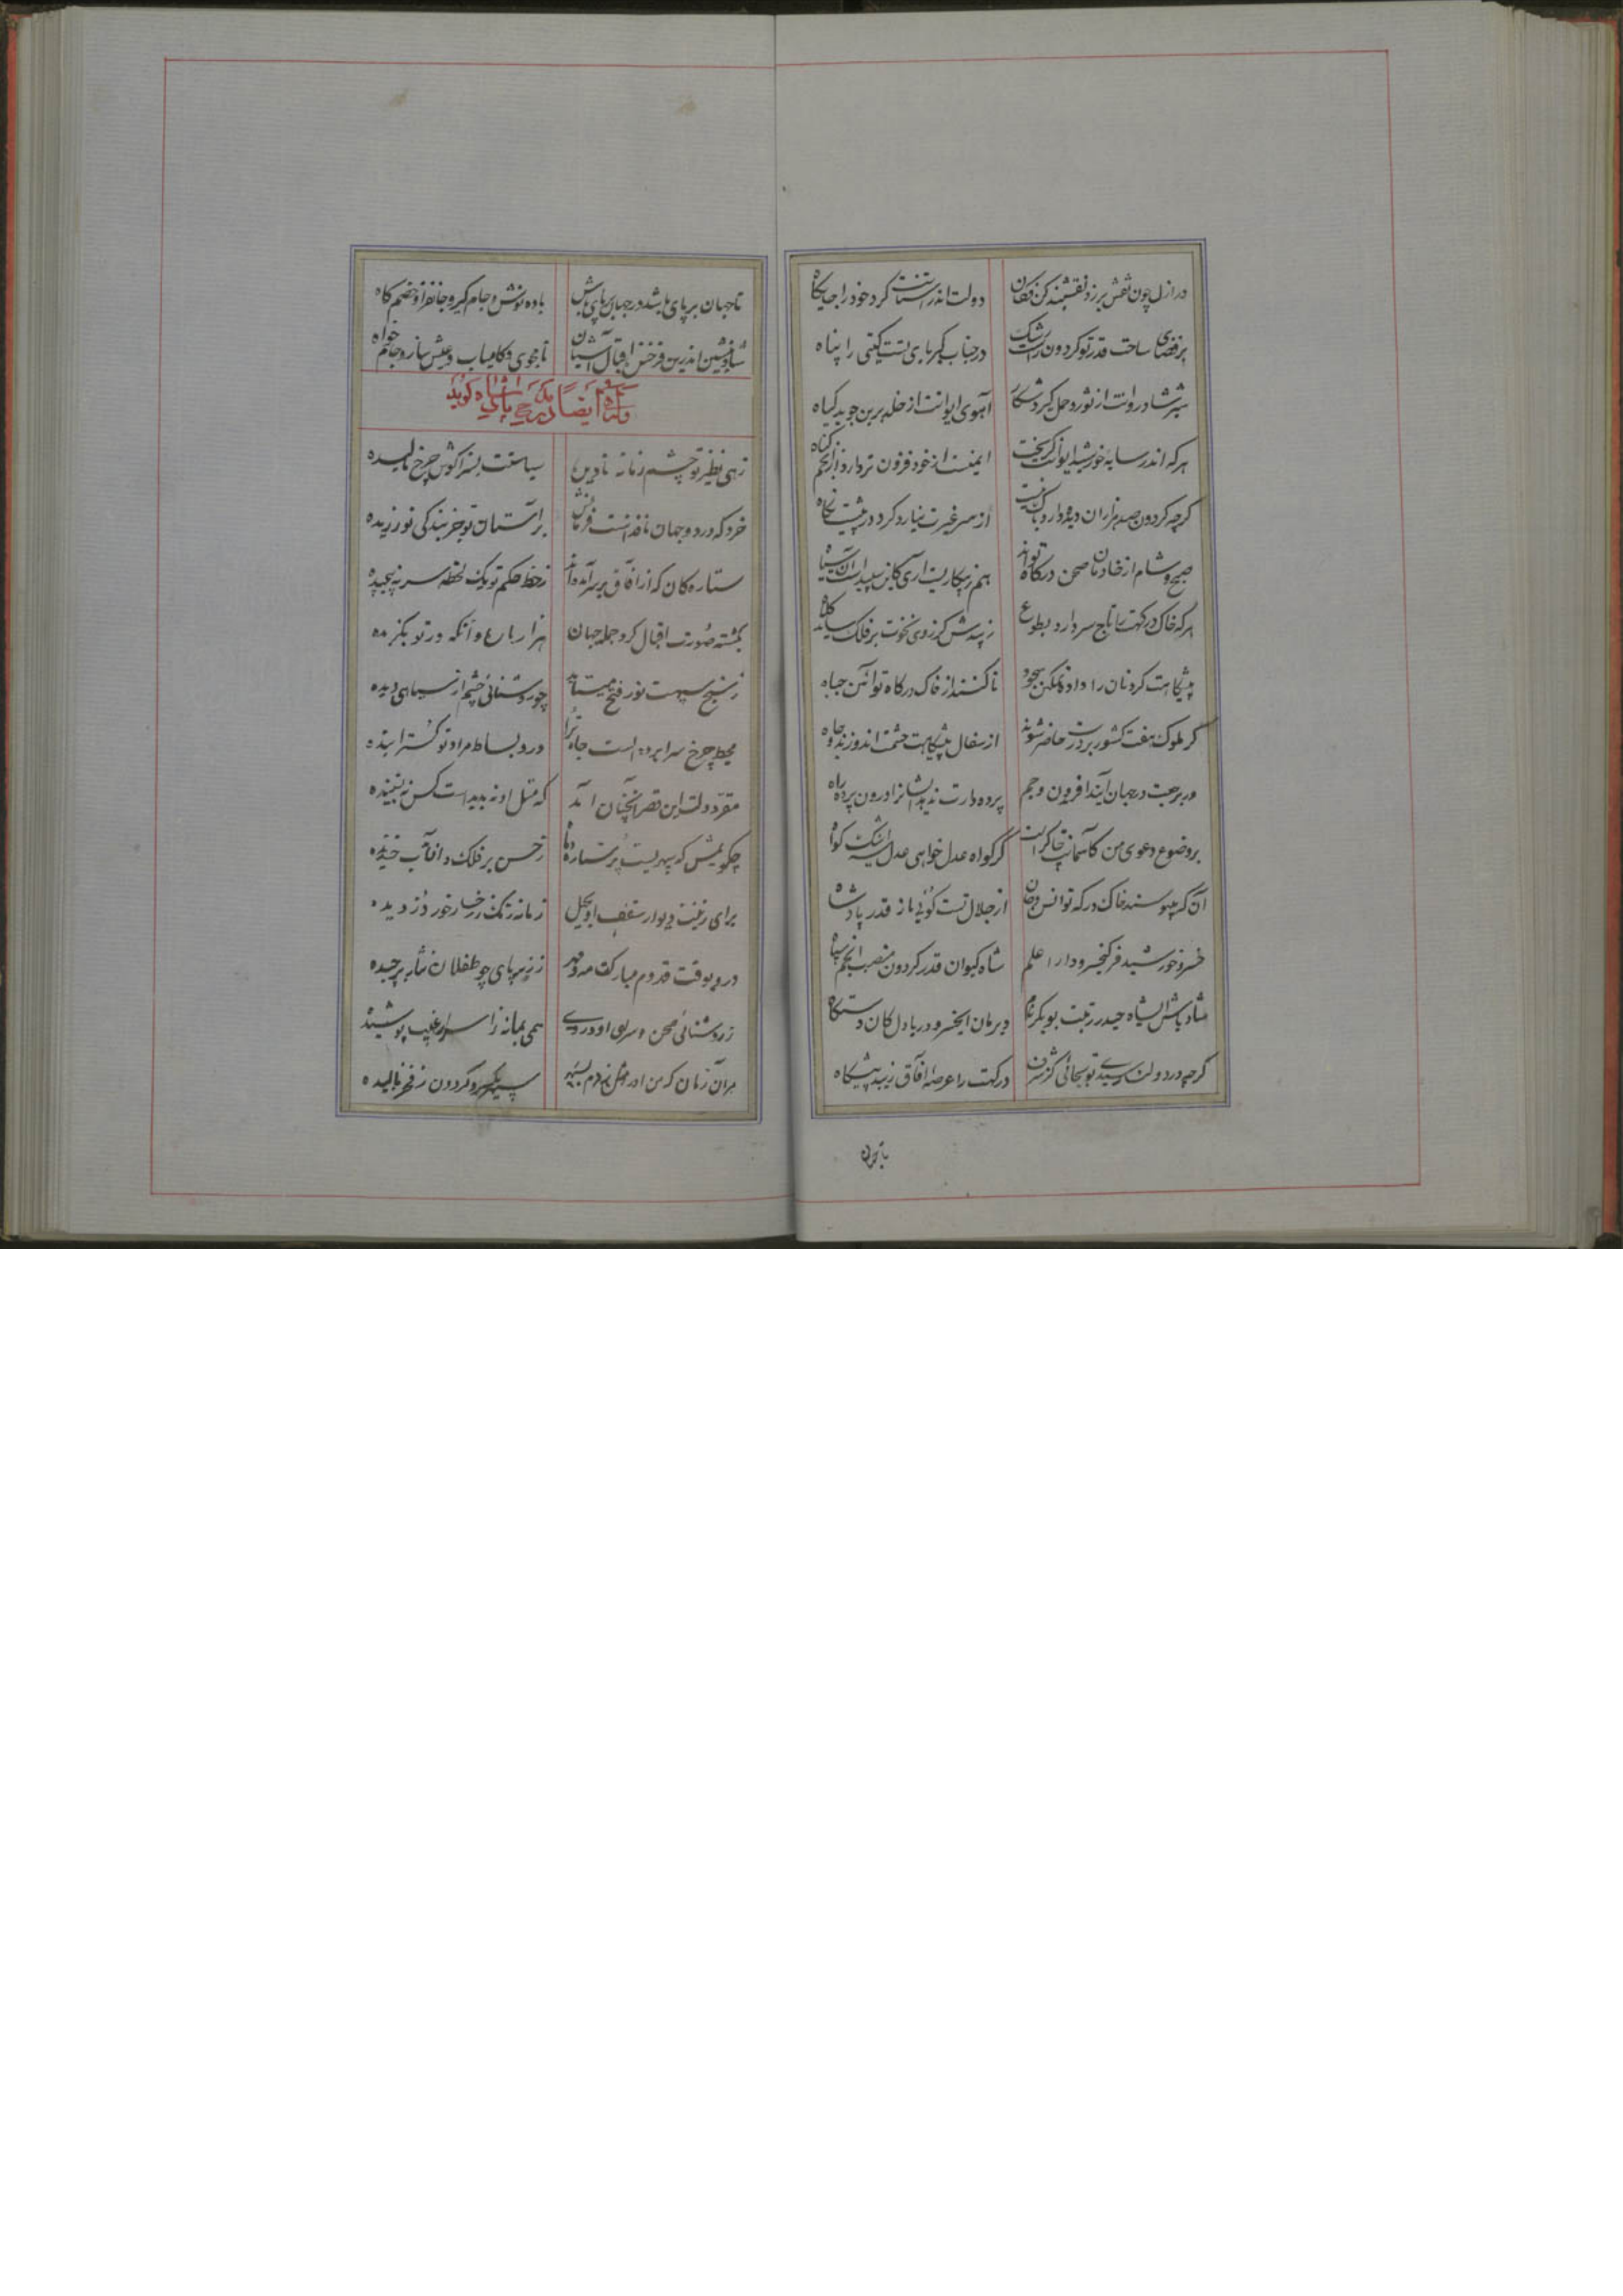 در ازل چون نقش برزد نقشبند کن فکان دولت اندر آستانت کرد خود را جایگاه
بر فضای ساحت قدر تو گردون راست رشک در جناب کبریای تست گیتی را پناه
شیر شادروانت از ثور و حمل گیرد شکار آهوی ایوانت از خلد برین جوید گیاه
هر که اندر سایه خورشید ایوانت گریخت ایمنست از خود فزون تر دارد از انجم گناه
گرچه گردون صد هزاران دیده دارد از سر غیرت نیارد کرد در پیشت نگاه
صبح و شام از خادمان صحن درگاه تواند هم
هر که خاک درگهت را تاج سر دارد بطوع زیبدش کز روی نخوت بر فلک ساید کلاه
پیشگاهت گردنان را داد تمکن سجود تا کنند از خاک درگاه تو آئین جباه
گر ملوک هفت کشور بر درت حاضر شوند از سفال پیشگاهت حشمت اندوزند و جاه
ور برجعت در جهان آیند افریدون و جم پرده دارت ندهد ایشانرا درون پرده راه
بر وضوع دعوی من کآسمانت چاکرست گر گواه عدل خواهی عدل شاهنشه گواه
آن که بوسند خاک درگه تو انس و جان از جلال تست گوئی یا ز قدر پادشاه
خسرو خورشید فر کیخسرو دارا علم شاه کیوان قدر گردون منصب انجم سپاه
شاد باش ای شاه حیدر رتبت بوبکر نام دیر مان ای خسرو دریا دل کان دستگاه
گرچه در دولت رسید تو بجائی کز شرف درگهت را عرصه آفاق زیبد پیشگاه
تا جهان
تا جهان بر پای باشد در جهان بر پای باش باده نوش و جام گیر و جانفزا و خصم کاه
شاد بنشین اندرین فرخنده اقبال آشیان نامجوی و کامیاب و عیش ساز و جام خواه
وله ایضا در مدح پادشاه گوید
زهی نظیر تو چشم زمانه نادیده سیاستت بسزا گوش چرخ مالیده
خرد که در دو جهان نافذست فرمانش بر آستان تو جز بندگی نورزیده
ستارگان که از آفاق بر سر آمده اند ز خط حکم تو یک لحظه سر نپیچیده
بگشته صورت اقبال گرد جمله جهان هزار بار و آنگه در تو بگزیده
ز تیغ سیهت نور فتح میتابد چو روشنائی چشم از سیاهی دیده
محیط چرخ سراپرده ایست جاه ترا درو بساط مراد تو گسترانیده
مقر دولت این قصر آنچنان آمد که مثل او نه بدیدست کس نه بشنیده
چگویمش که سپهریست پر ستاره و ماه ز حسن بر فلک و آفتاب خندیده
برای زینت دیوار سقف او بحیل زمانه رنگ ز رخسار خور دزدیده
درو بوقت قدوم مبارکت مه و مهر ز زیر پای چو طفلان نثار برچیده
ز روشنائی صحن و سرای او در وی همی نماند ز اسرار غیب پوشیده
بر آن زمان که من او را مثل زدم بسپهر سپهر گردون ز فخر بالیده